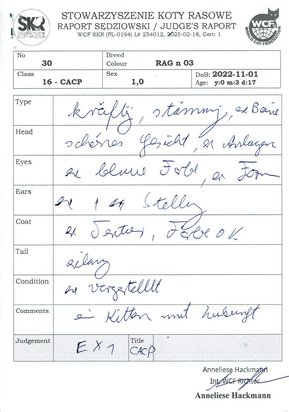 SKR
STOWARZYSZENIE KOTY RASOWE
RAPORT SĘDZIOWSKI / JUDGE'S RAPORT
WCF SKR (PL-0194) L# 234012, 2023-02-18, Cert: 1
WCF
No 30 Breed Colour RAG n 03
Class 16 - CACP Sex 1,0 DoB: 2022-11-01
Age: y:0 m:3 d:17
Type kräftig, stämmig, ex Beine
Head schönes Gesicht, ex Anlagen
Eyes ex blaue Farbe, ex Form
Ears ex + ex Stellg
Coat ex Textur, Farbe OK
Tail
Condition ex vorgestellt
Comments ein Kitten mit Zukunft
Judgement EX 1 Title CACP
Anneliese Hackmann
Int. WCF Richter
Anneliese Hackmann